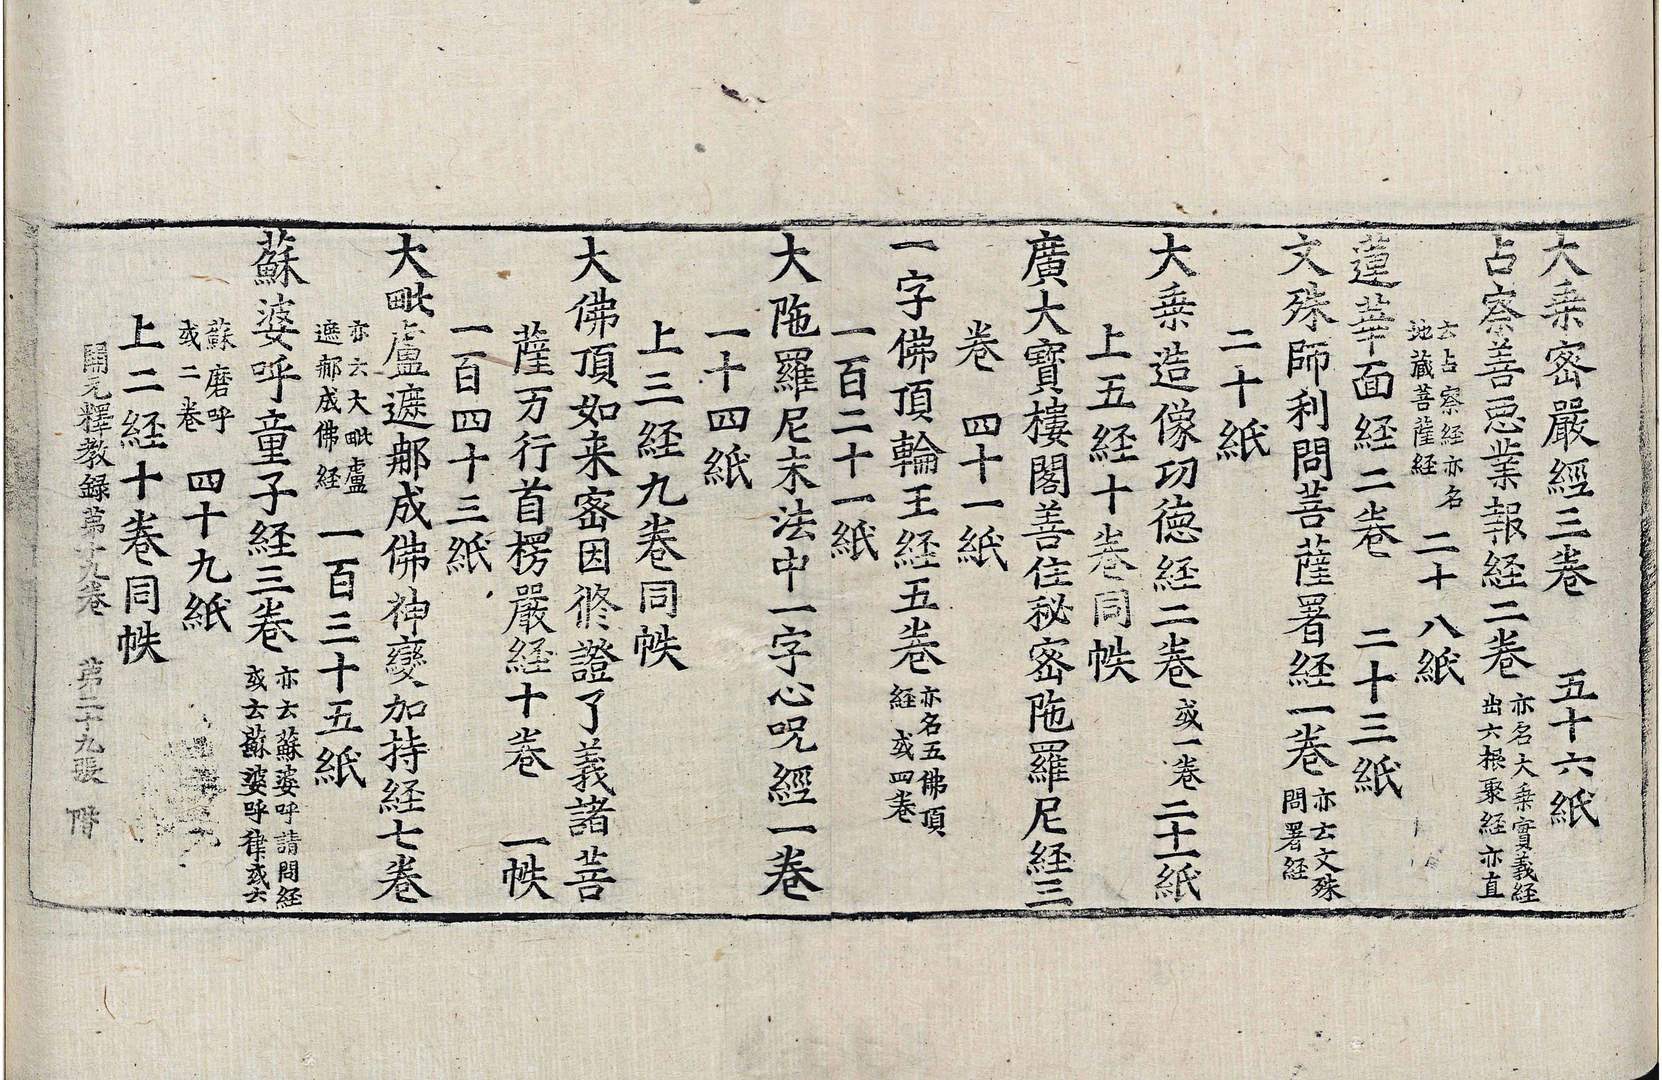 大乗密嚴經三卷　五十六紙
占察善惡業報経二卷 亦名大乗實義経
出六根聚経亦直
云占察経亦名
地蔵菩薩経 二十八紙
蓮華面経二卷　二十三紙
文殊師利問菩薩署経一卷 亦云文殊
問署経
二十紙
大乗造像功徳経二卷 或一卷 二十一紙
上五経十卷同帙
廣大寶樓閣善住秘密陁羅尼経三
卷　四十一紙
一字佛頂輪王経五卷 亦名五佛頂
経或四卷
一百二十一紙
大陁羅尼末法中一字心呪經一卷
一十四紙
上三経九卷同帙
大佛頂如来密因修證了義諸菩
薩万行首楞嚴経十卷　一帙
一百四十三紙
大毗盧遮那成佛神變加持経七卷
亦云大毗盧
遮那成佛経 一百三十五紙
蘇婆呼童子経三卷 亦云蘇婆呼請問経
或云蘇婆呼律或云
蘇磨呼
或二卷 四十九紙
上二経十卷同帙
開元釋教録苐十九卷　苐二十九張　階